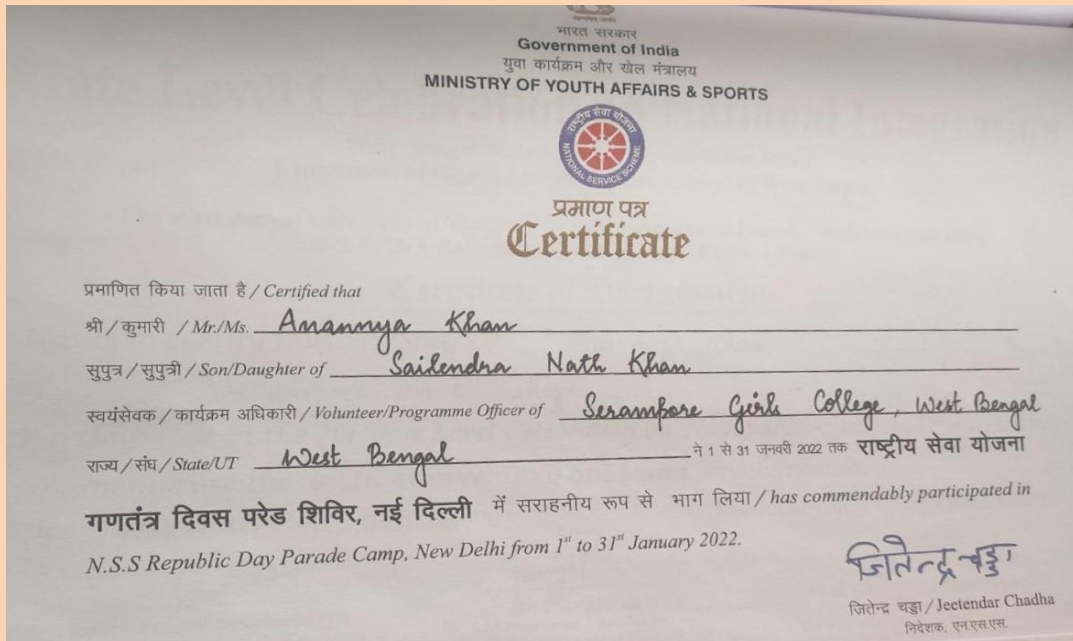 भारत सरकार
Government of India
युवा कार्यक्रम और खेल मंत्रालय
MINISTRY OF YOUTH AFFAIRS & SPORTS
राष्ट्रीय सेवा योजना
NATIONAL SERVICE SCHEME
प्रमाण पत्र
Certificate
प्रमाणित किया जाता है / Certified that
श्री / कुमारी / Mr./Ms. Anannya Khan
सुपुत्र / सुपुत्री / Son/Daughter of Sailendra Nath Khan
स्वयंसेवक / कार्यक्रम अधिकारी / Volunteer/Programme Officer of Serampore Girls College, West Bengal
राज्य / संघ / State/UT West Bengal ने 1 से 31 जनवरी 2022 तक राष्ट्रीय सेवा योजना
गणतंत्र दिवस परेड शिविर, नई दिल्ली में सराहनीय रूप से भाग लिया / has commendably participated in
N.S.S Republic Day Parade Camp, New Delhi from 1st to 31st January 2022.
जितेन्द्र चड्डा
जितेन्द्र चड्डा / Jeetendar Chadha
निदेशक, एन.एस.एस.